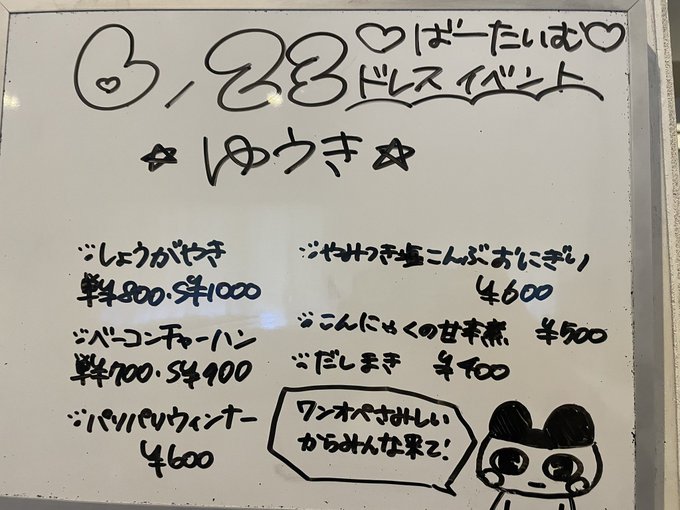 6/23
♡ばーたいむ♡
ドレスイベント
☆ゆうき☆
しょうがやき
単¥800・S¥1000
ベーコンチャーハン
単¥700・S¥900
パリパリウィンナー
¥600
やみつき塩こんぶおにぎり
¥600
こんにゃくの甘辛煮 ¥500
だしまき ¥400
ワンオペさみしい
からみんな来て!